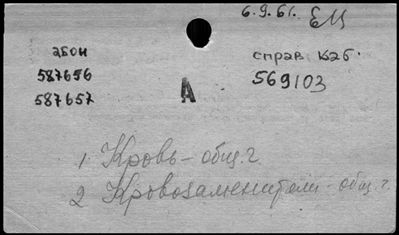 6.9.61. ЕМ
абон справ. каб.
587656 569103
587657
А
1 Кровь - общ. г.
2 Кровозаменители - общ. г.